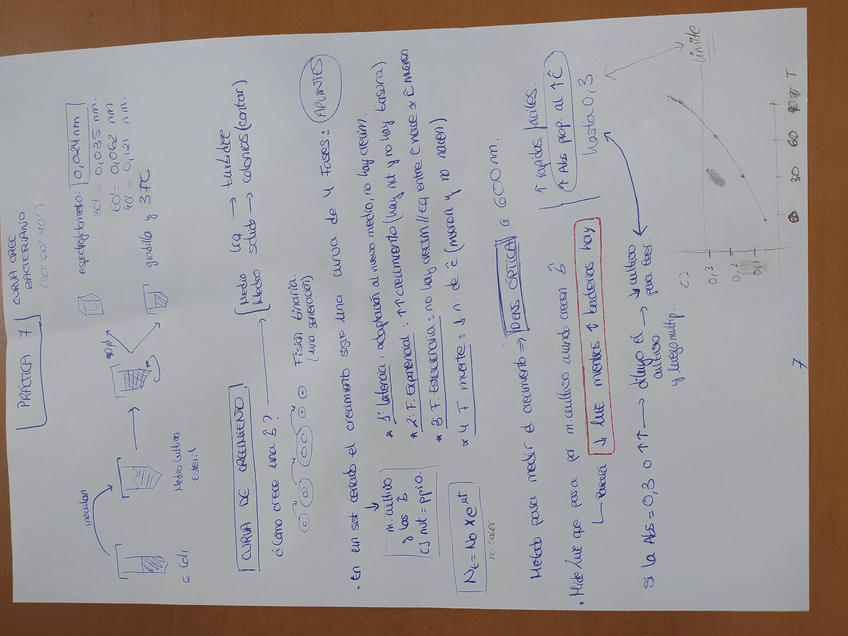 PRÁCTICA 7
CURVA CREC
BACTERIANO
(30' 60' 90')
inoculan
E. Coli
Medio Cultivo
Esteril
30 µl
espectrofotometro: 0,024 nm
30' = 0,035 nm.
60' = 0,062 nm
90' = 0,121 nm.
gradilla y 37°C
CURVA DE CRECIMIENTO
¿Cómo crece una B?
Medio liq → turbidez
Medio solido → colonias (contar)
Fisión binaria.
(una generación)
· En un sist cerrado el crecimiento sigue una curva de 4 Fases: APUNTES
m cultivo
↓
y las B
[] nut = ppio.
* 1ª latencia: adaptación al nuevo medio, no hay crecim.
* 2: F. Exponencial: ↑↑ crecimiento (hay nut y no hay basura)
* 3: F. Estacionaria: no hay crecim // EQ entre ĉ nace x ĉ mueren
* 4: F. muerte: ↓ n: de ĉ (mueren y no nacen)
Nt = No x e^µt
no saber
Metodo para medir el crecimiento ⇒ DENS ÓPTICA a 600 nm.
· Mido luz que pasa por m cultivo cuando crecen B
Pasará ↓ luz mientras ↑ bacterias hay
↑ rapidos, faciles.
↑ Abs prop. al ↑ ĉ
hasta 0,3
Si la Abs = 0,3 o ↑↑ → diluyo el cultivo → ↓ cultivo para leer
y luego multip.
[]
0,3
0,2
0,1
límite
30 60 90 T
7